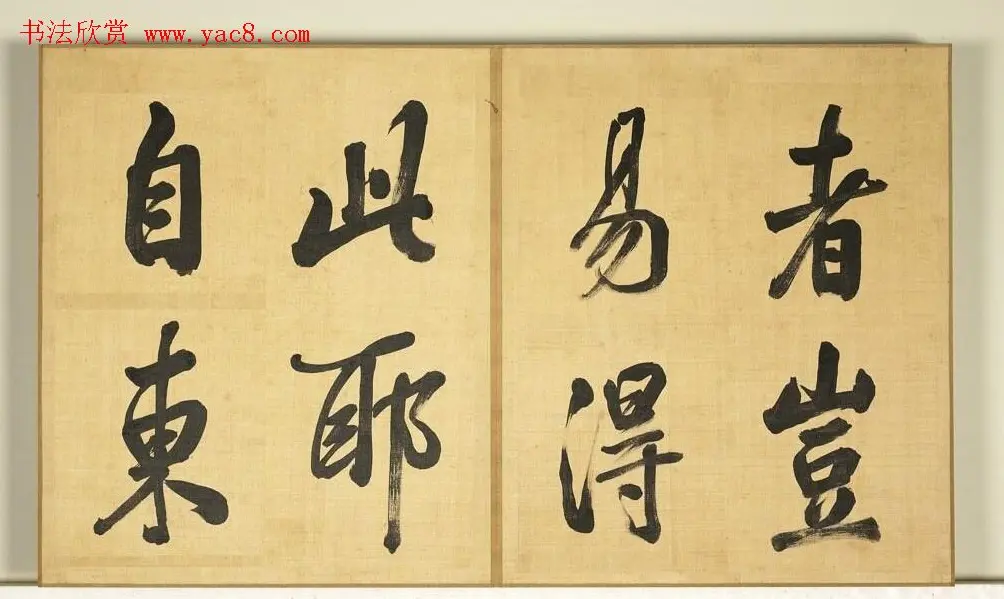 书法欣赏 www.yac8.com
者豈
易得
此耶
自東